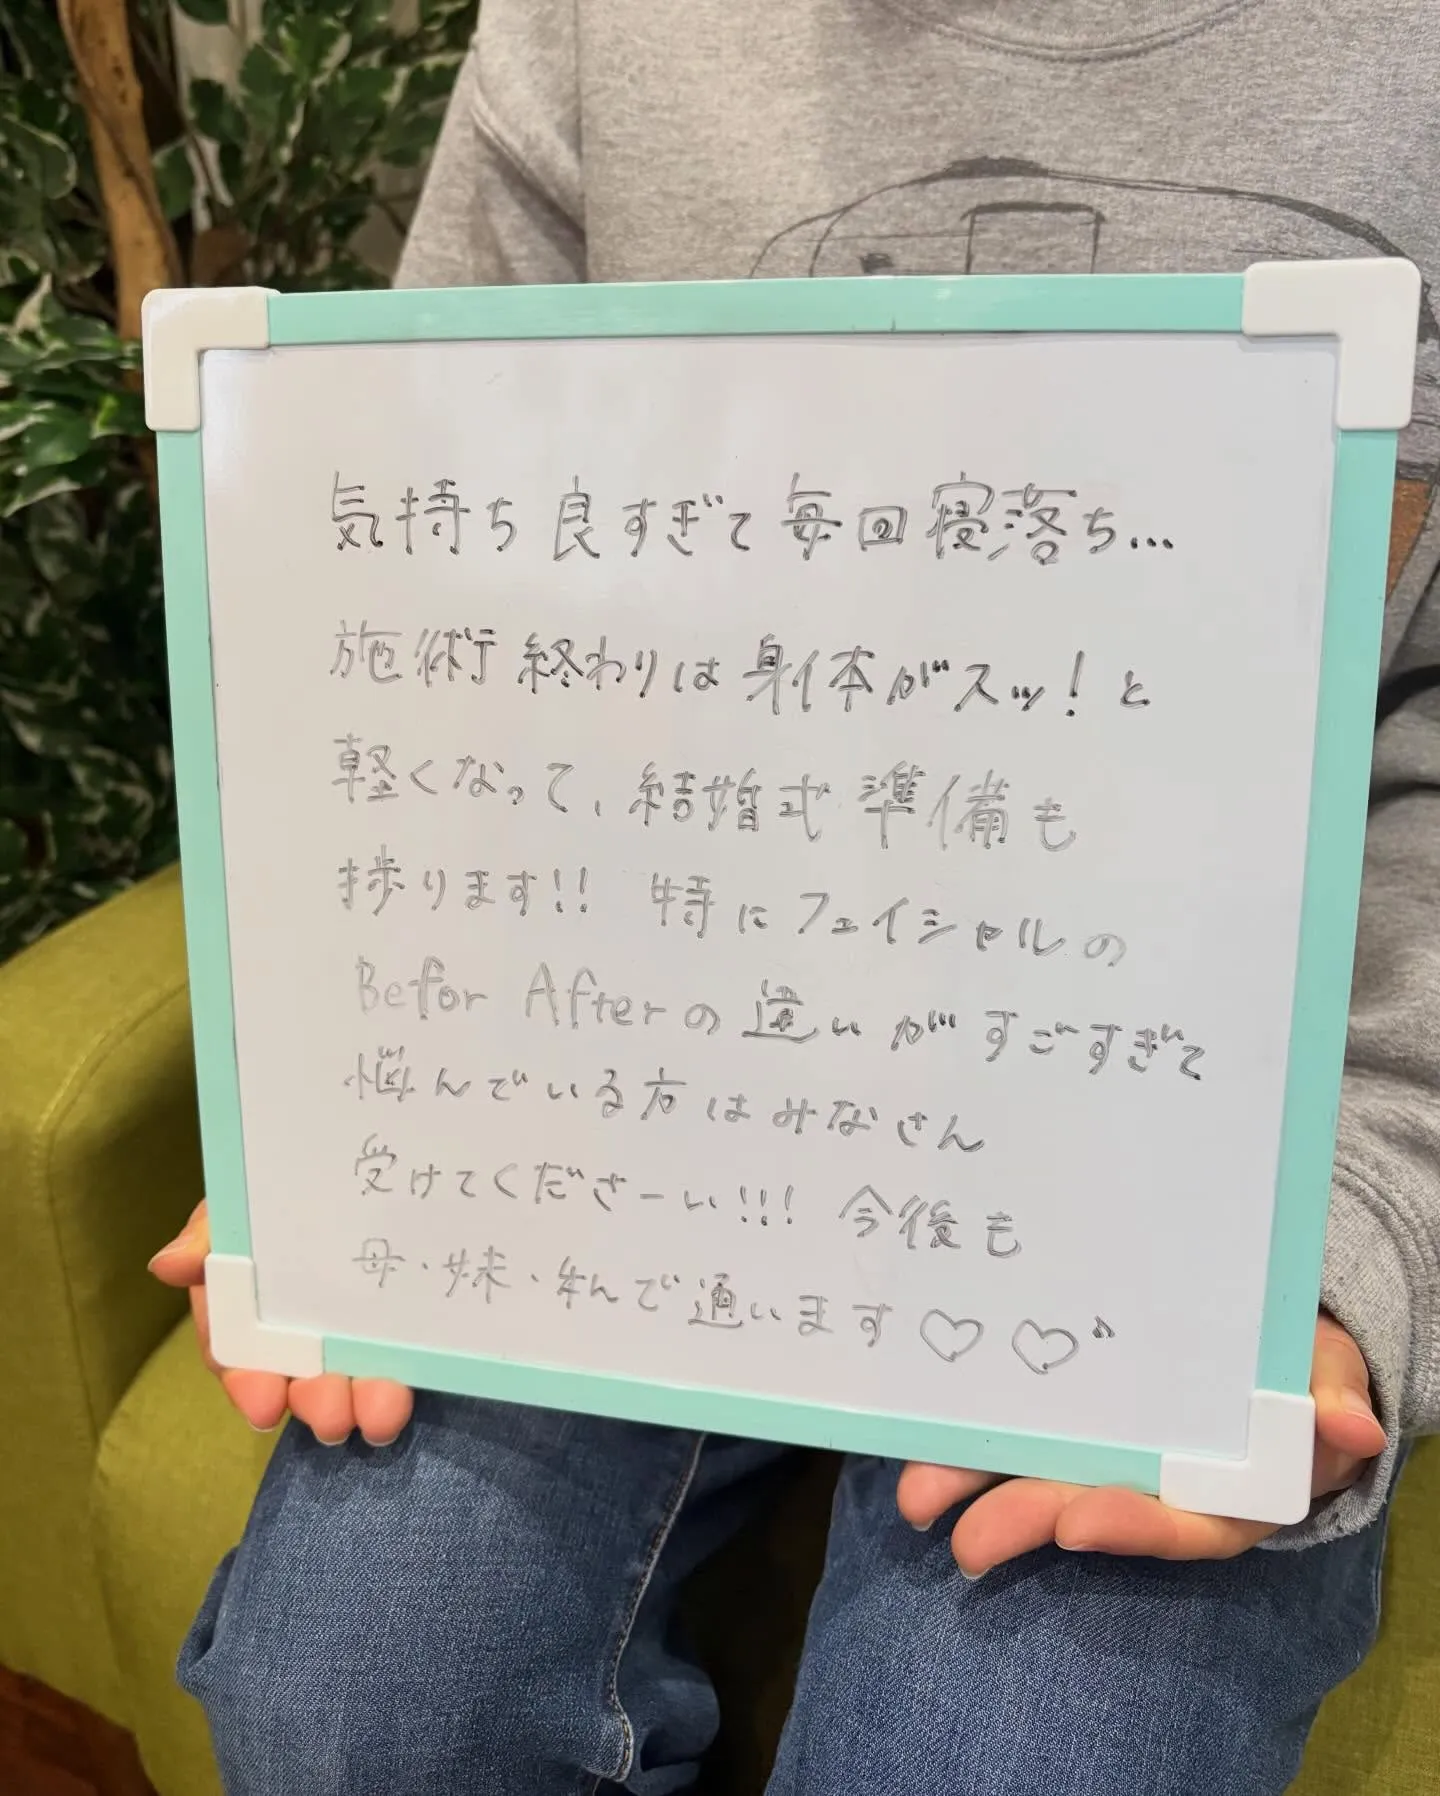 気持ち良すぎて毎回寝落ち...
施術終わりは身体がスッ!と
軽くなって、結婚式準備も
捗ります!! 特にフェイシャルの
Befor Afterの違いがすごすぎて
悩んでいる方はみなさん
受けてくださーい!!! 今後も
母・妹・私んで通います♡♡♪